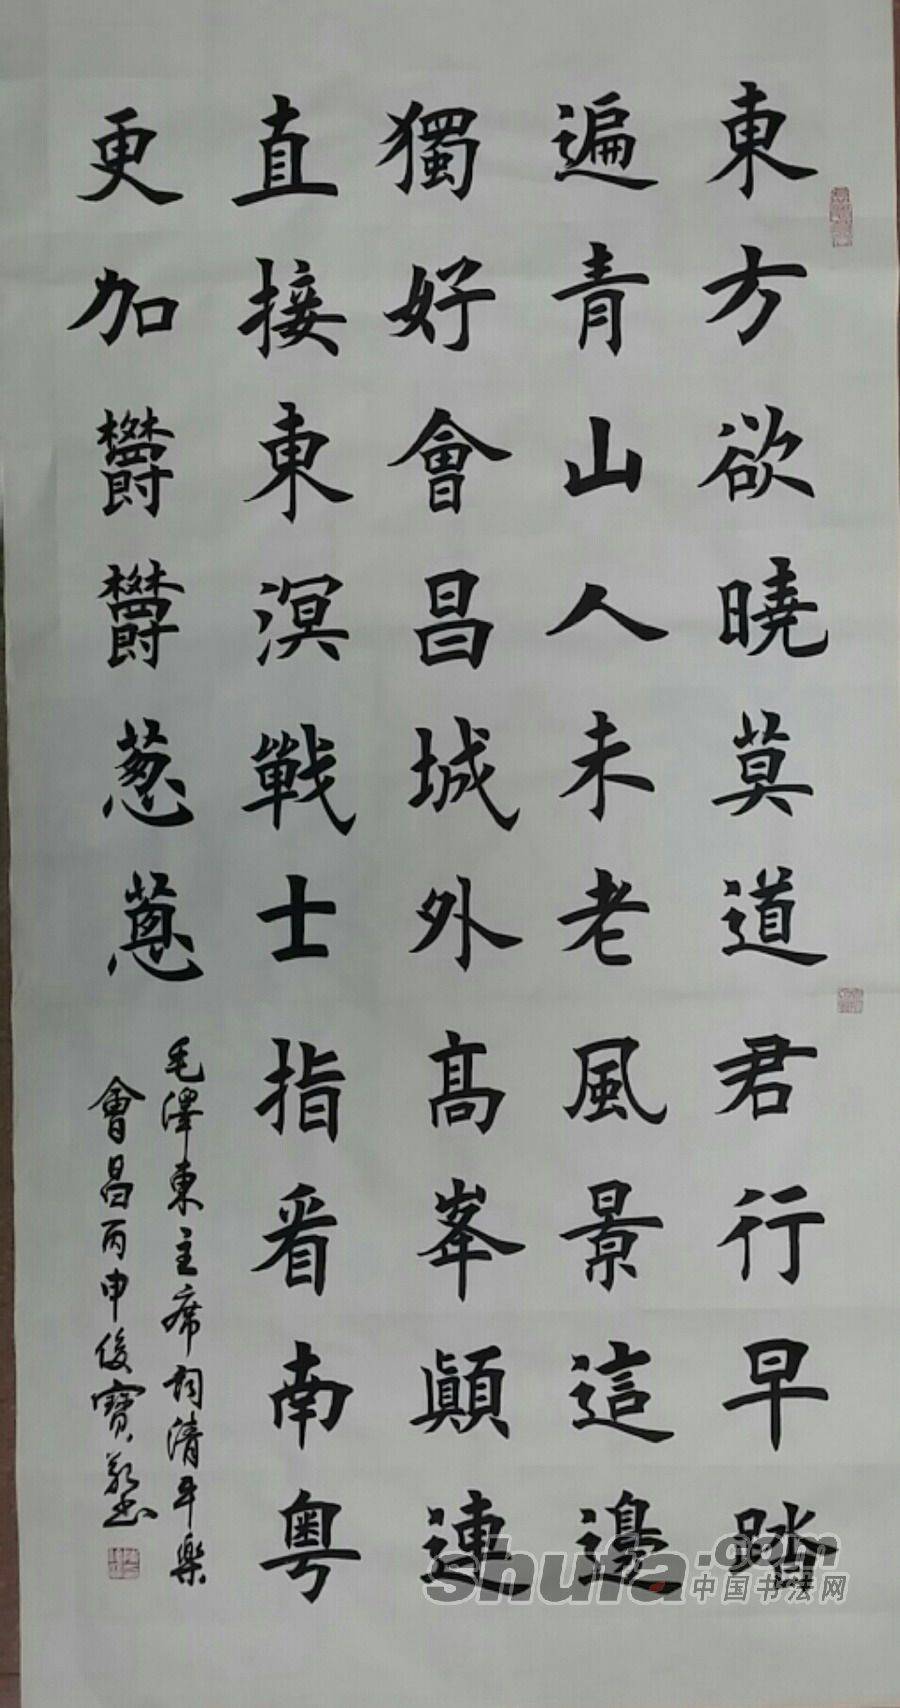 東方欲曉莫道君行早踏
遍青山人未老風景這邊
獨好會昌城外高峯顛連
直接東溟戰士指看南粵
更加欝欝葱蔥
毛澤東主席詞清平樂
會昌丙申俊寶敬書
shufa.com
中国书法网